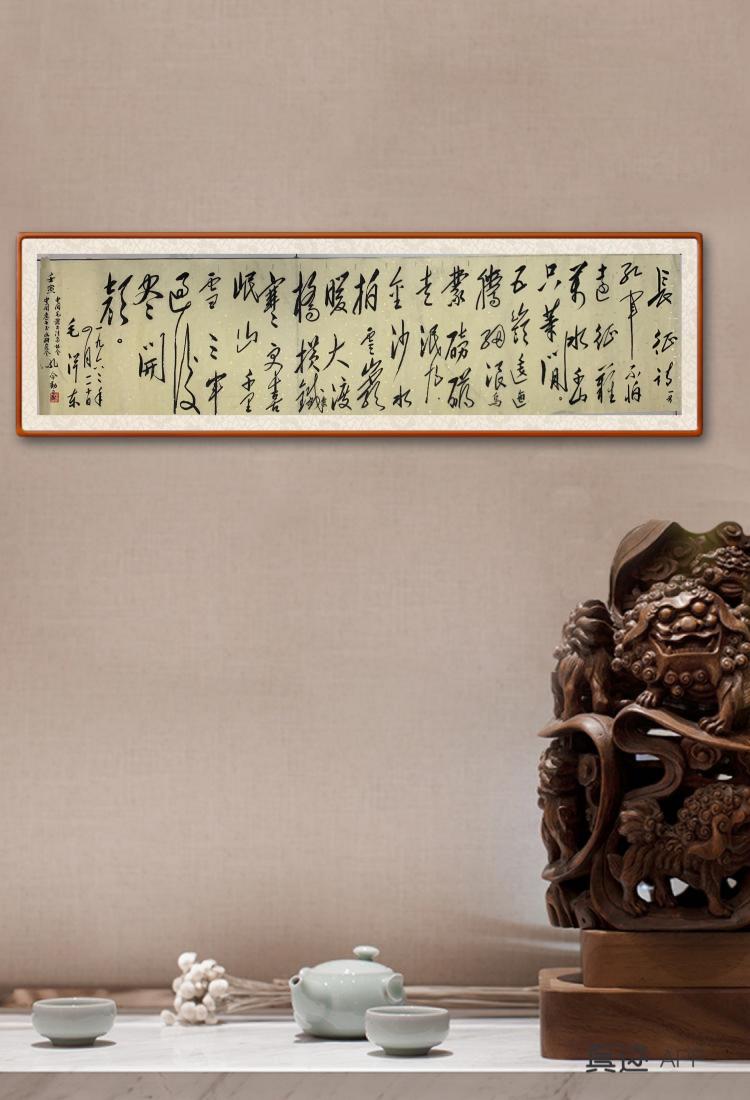 長征詩一首
紅軍不怕
遠征難
萬水千山
只等閒。
五嶺逶迤
騰細浪烏
蒙磅礴
走泥丸
金沙水
拍雲巖
暖大渡
橋横鐵索
寒更喜
岷山千里
雪三軍
過後
尽開
顔。
一九六二年
四月二十日
毛泽东
壬寅
真迹 APP